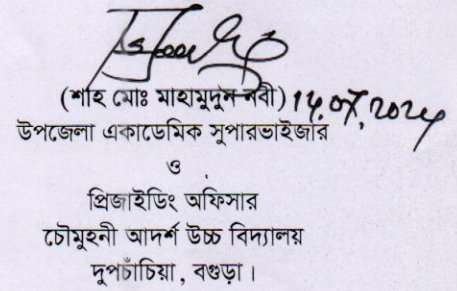 (শাহ মোঃ মাহামুদুন নবী) 14.07.2024
উপজেলা একাডেমিক সুপারভাইজার
ও
প্রিজাইডিং অফিসার
চৌমুহনী আদর্শ উচ্চ বিদ্যালয়
দুপচাঁচিয়া, বগুড়া।